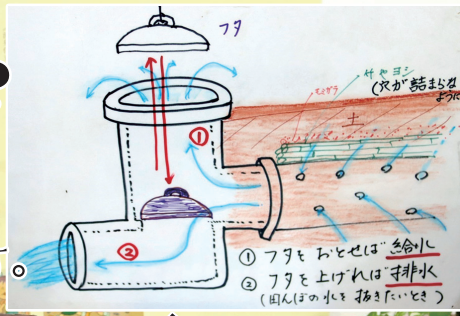 フタ
竹やヨシ
(穴が詰まらな
ように
もみガラ
土
①
②
① フタをおとせば 給水
② フタを上げれば 排水
(田んぼの水を抜きたいとき)